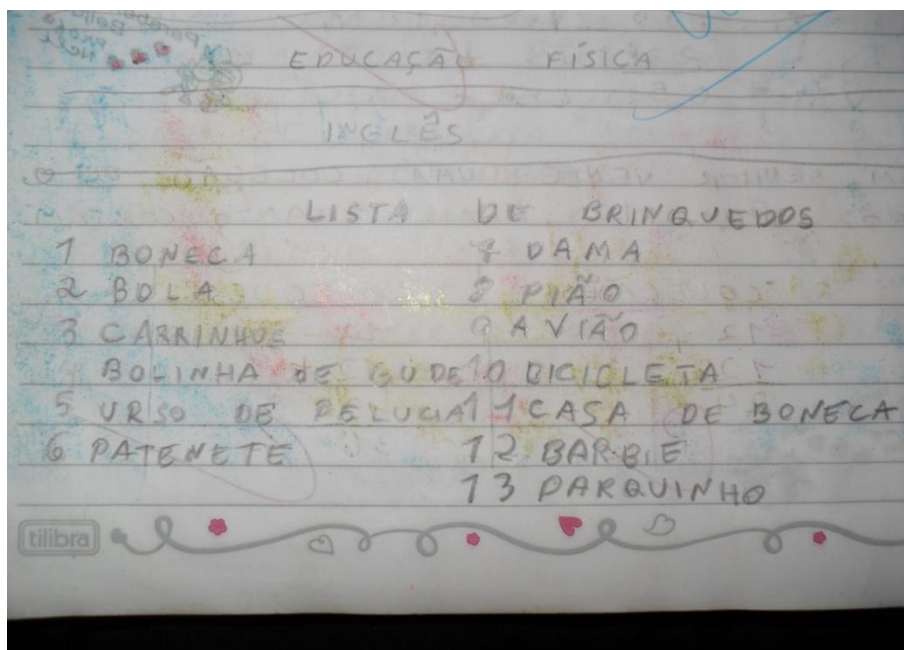 EDUCAÇÃO FÍSICA
INGLÊS
LISTA DE BRINQUEDOS
1 BONECA
2 BOLA
3 CARRINHOS
BOLINHA DE GUDE
5 URSO DE PELUCIA
6 PATENETE
7 DAMA
8 PIÃO
9 AVIÃO
10 BICICLETA
11 CASA DE BONECA
12 BARBIE
13 PARQUINHO
tilibra